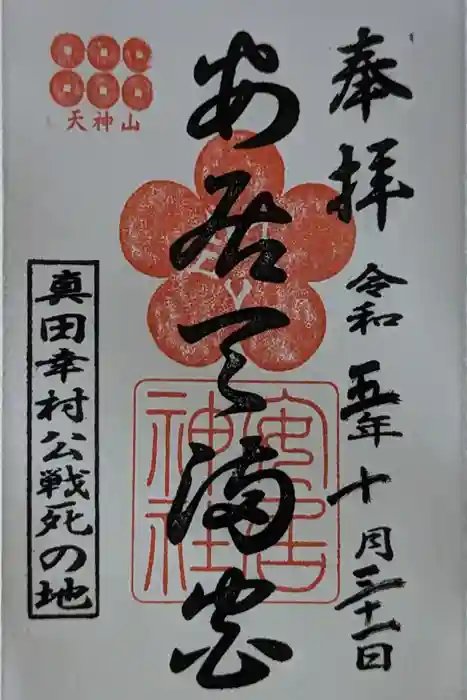 奉拝
令和五年十月三十一日
安居天満宮
安居
神社
天神山
真田幸村公戦死の地